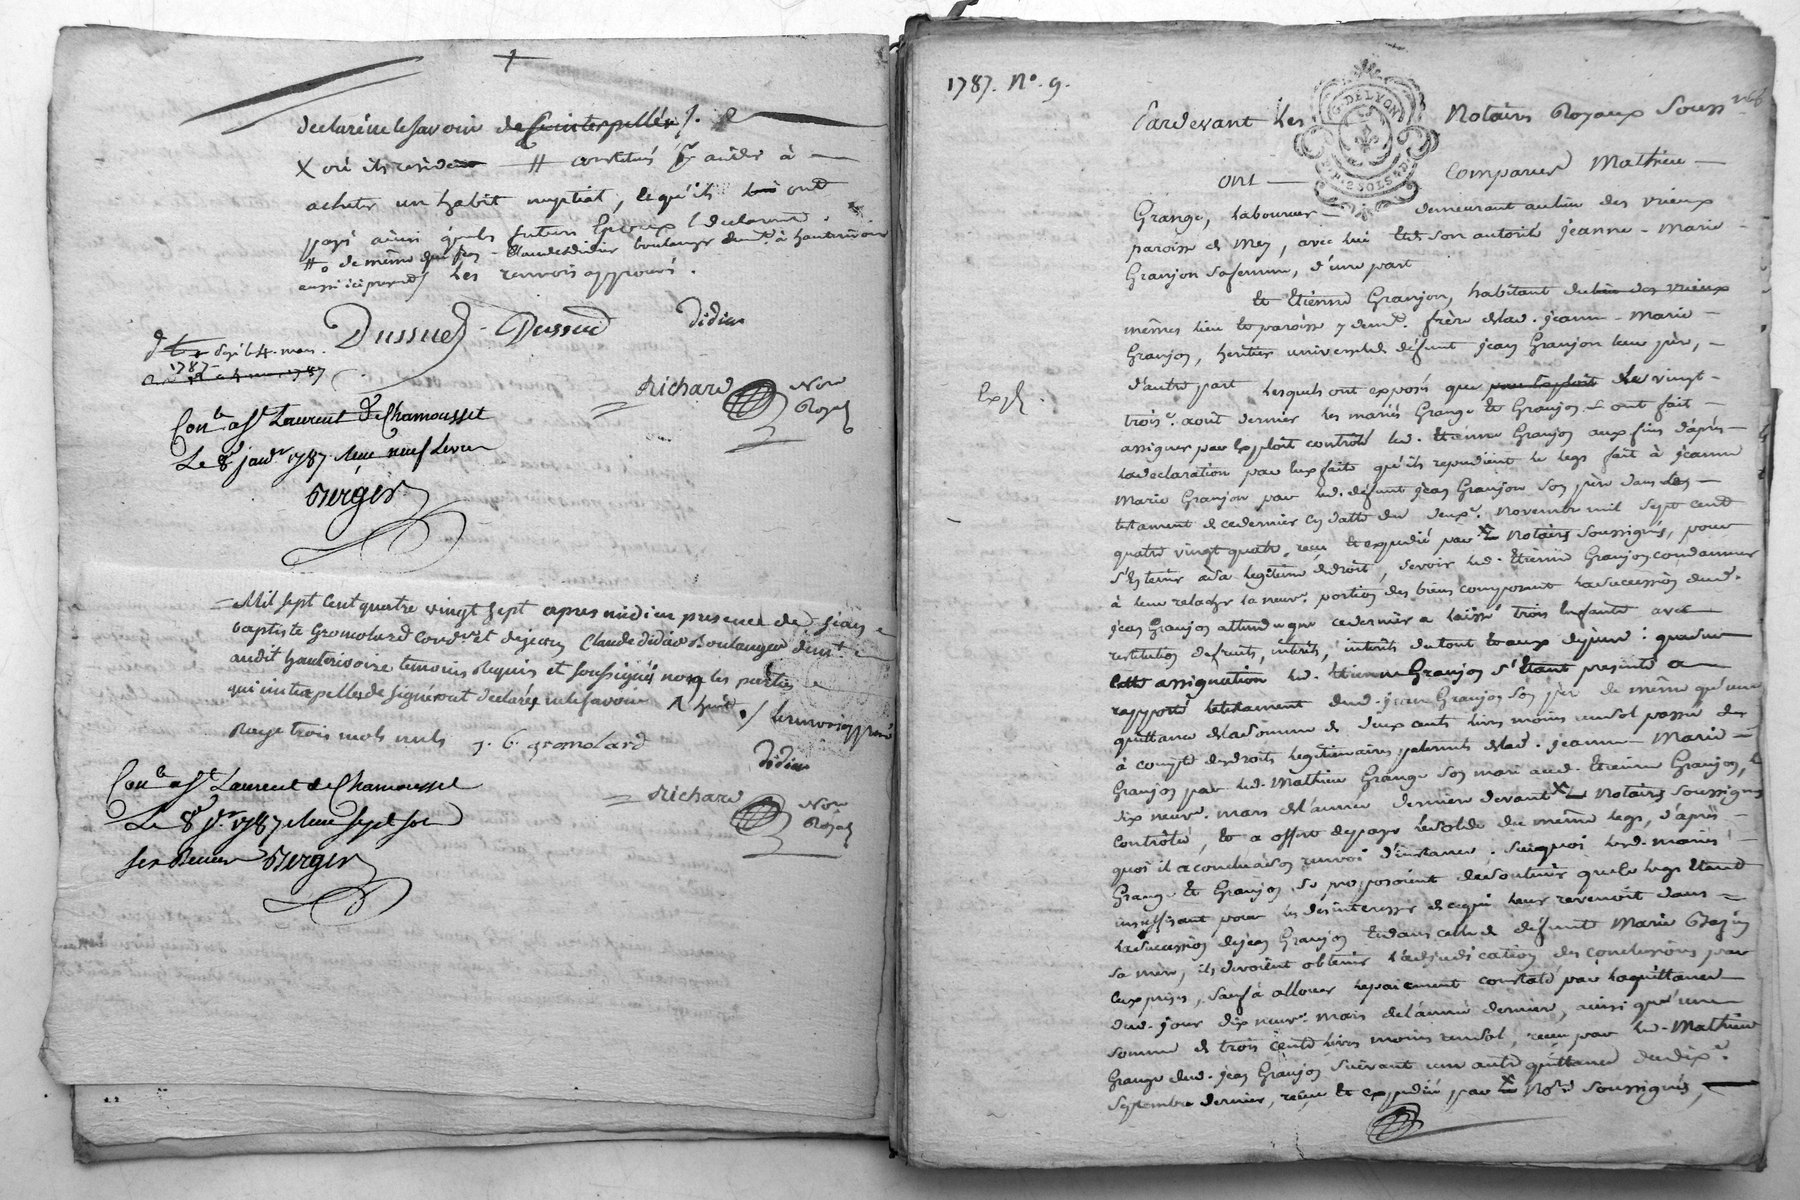 declaré ne le savoir de ce interpellés /.
X où ils resident # constitués pr. aider à
acheter un habit nuptial, ce qu'ils lui ont
payé ainsi que les futurs Epoux le declarent.
#. de même que sr. Claude Didier boulanger demt. à hauterivoire
aussi ici present / les renvois approuvés.
Dussud Dussud Didier
Expé le 4. mars.
1787
Richard Nore
Royal
Conlé a St Laurent de Chamousset
Le 8 janvr 1787. Reçu neuf livres
Berger
Mil sept cent quatre vingt sept apres midi en presence de Jean
baptiste Gromolard et de Claude Didier Boulanger demt
audit hauterivoire temoins Requis et soussignés non les parties
qui interpellées de signer ont declaré ne le savoir / le renvoi approuvé
Rayé trois mots nuls J. b. gromolard
Didier
Conlé a St Laurent de Chamousset
Le 8 jr. 1787 Reçu sept sols
six deniers Berger
Richard Nore
Royal
1787. No. 9.
G. DE LYON
P. P. 2 SOLS 4 D.
Pardevant Les Notaires Royaux Soussnés
ont Comparu Mathieu
Grange, laboureur demeurant au lieu des vrieux
paroisse de Meys, avec lui Et de son autorité Jeanne-Marie
Granjon sa femme, d'une part
Et Etienne Granjon, habitant du lieu des vrieux
mêmes lieu et paroisse y demt. frère de lad. Jeanne-Marie
Granjon, heritier universel de défunt Jean Granjon leur père,
d'autre part Lesquels ont exposés que par exploit du vingt
Expé.
trois. aout dernier les mariés Grange Et Granjon ont fait
assigner par Exploit controlé led. Etienne Granjon aux fins d'après
la declaration par eux faite qu'ils repudient le legs fait à Jeanne
Marie Granjon par led. défunt Jean Granjon son père dans les
testament de ce dernier en datte du deuxe. Novembre mil sept cent
quatre vingt quatre, reçu Et expedié par X les Notaires Soussignés, pour
s'en tenir à sa legitime de droit, se voir led. Etienne Granjon condamner
à leur relacher la neuve. portion des biens composant la succession dud.
Jean Granjon attendu que ce dernier a laissé trois Enfants avec
restitution de fruits, interêts, interêts du tout et aux dépens: que sur
cette assignation led. Etienne Granjon s'étant presenté a
rapporté le testament dud. Jean Granjon son père de même qu'une
quittance de la somme de deux cents livres moins un sol passée des
à compte des droits legitimaires paternels de lad. Jeanne-Marie
Granjon par led. Mathieu Grange son mari aud. Etienne Granjon, le
dix neuve. mars de l'année derniere devant X les Notaires Soussignés
controlée, Et a offert de payer le solde du même legs, d'après
quoi il a conclu à son renvoi d'instance; sur quoi lesd. mariés
Grange Et Granjon se proposoient de soutenir que le legs Etant
insuffisant pour les desinteresser de ce qui leur revenoit dans
la succession de Jean Granjon Et dans celle de défunte Marie
sa mere, ils devoient obtenir l'adjudication des conclusions par
eux prises, sauf à allouer le paiement constaté par la quittance
dud. jour dix neuve. mars de l'année derniere, ainsi qu'une
somme de trois cents livres moins un sol, reçue par led. Mathieu
Grange dud. Jean Granjon suivant une autre quittance du dixe.
Septembre dernier, reçue Et expediée par X les Nores. Soussignés,